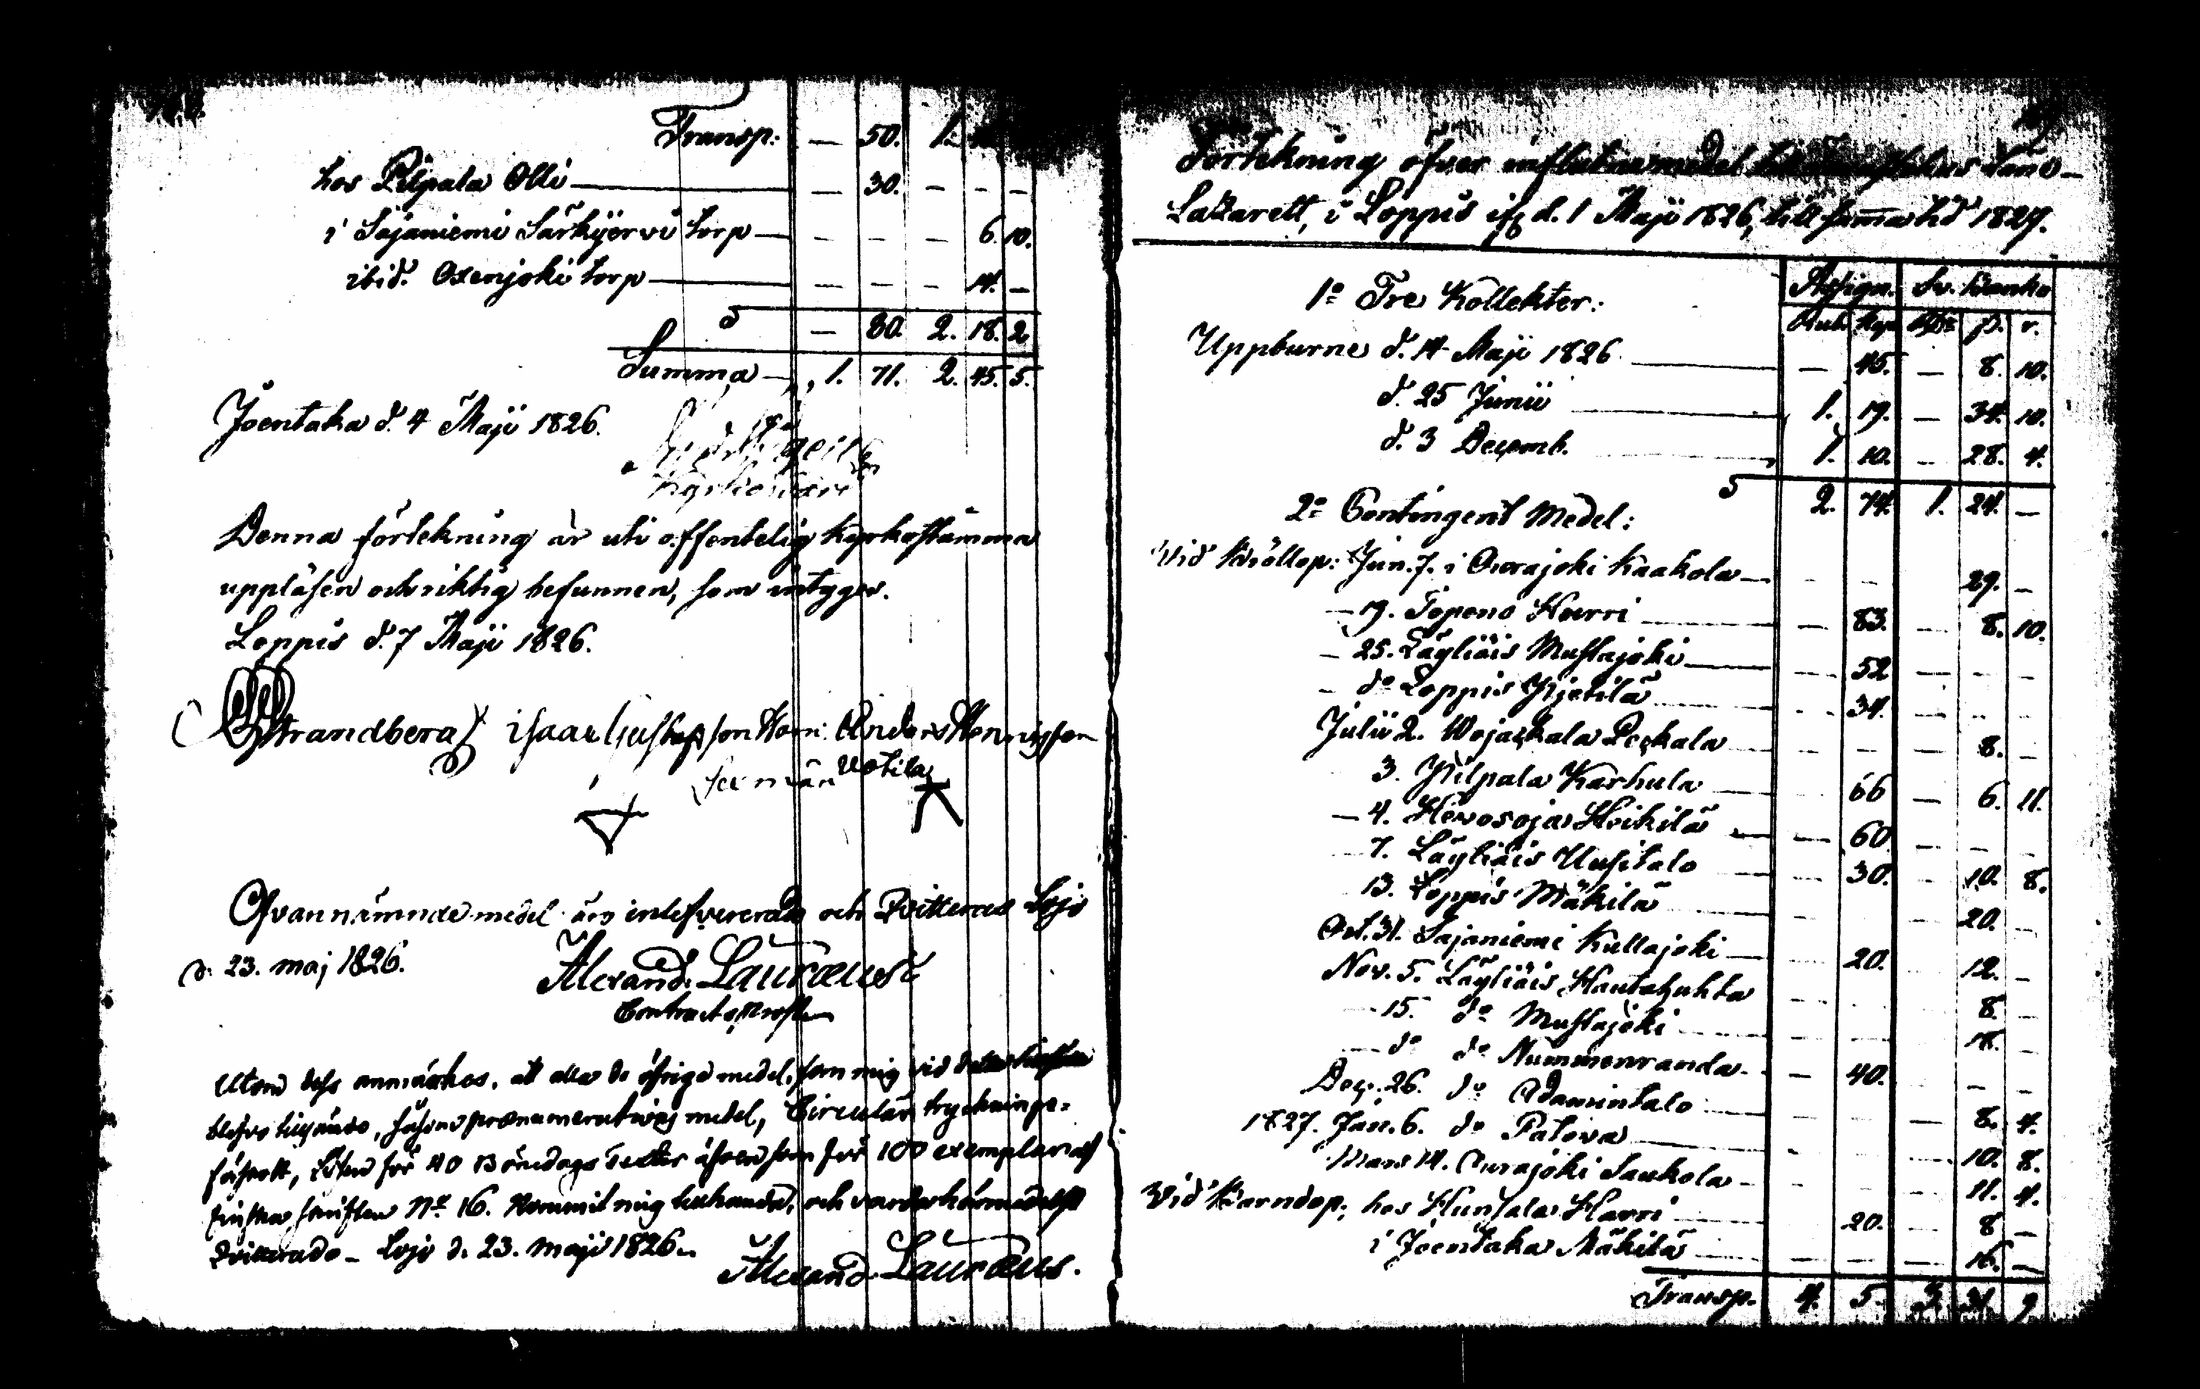 Transp: — 50. 1.
hos Pilpala Olli — — 30. — — —
i Sajaniemi Särkijervi torp — — — — 6. 10.
ibid. Oxenjoki torp — — — — 14. —
S — 80. 2. 18. 2
Summa — 1. 71. 2. 45. 5.
Joentaka d. 4 Maji 1826.
Denna förtekning är uti offentelig kyrkostämma
uppläsen och riktig befunnen, som intygas.
Loppis d. 7 Maji 1826.
Strandberg Isaac Gustafsson Anders Henrigsson
Uotila
Ofvannämnde medel äro inlefvererade och Qvitteras Lojo
d. 23. maj 1826.
Alexand. Lauræus
Contracts Prost
Utom dess anmärkes, at alla de öfrige medel, som mig vid
prænumerations medel, Circulär trycknings-
för 40 Böndags Texter äfven som för 100 exemplar af
finska skriften No 16. kommit mig tillhanda, och varda härmedelst
Qvitterade — Lojo d. 23. maji 1826.
Alexand. Lauræus.
Förtekning öfver influtne medel Läns-
Lazarett, i Loppis ifr. d. 1 Maji 1826, till samma tid 1827.
Assign. Sv. Banko
Rub. Kop. Rdr s. r.
1o Tre Kollekter:
Uppburne d. 14 Maji 1826 — 45. — 8. 10.
d. 25 Junii 1. 19. — 34. 10.
d. 3 Decemb. 1. 10. — 28. 4.
S 2. 74. 1. 24. —
2o Contingent Medel:
Vid Bröllop: Jun. 7. i Ourajoki Kaakola — 29. —
— 19. Topeno Hurri — 83. — 8. 10.
— 25. Läyliäis Mustajoki — 52
— do Loppis Pietilä 34.
Julii 2. Wojackala Peckala 8. —
3. Pilpala Karhula 66 — 6. 11.
— 4. Hevosoja Heikilä — 60
7. Läyliäis Uusitalo 30. 10. 8.
13. Loppis Mäkilä 20. —
Oct. 31. Sajaniemi Kullajoki — 20. 12. —
Nov. 5. Läyliäis Hautahuhta 8. —
15. do Mustajoki 18. —
do do Nummenranda — 40.
Dec. 26. do Adamintalo 8. 4.
1827. Jan. 6. do Palova 10. 8.
Mars 14. Ourajoki Saukola 11. 4.
Vid Barndop: hos Hunsala Harri 20. — 8 —
i Joentaka Mäkilä 16. —
Transp. 4. 5. 3. 31. 9